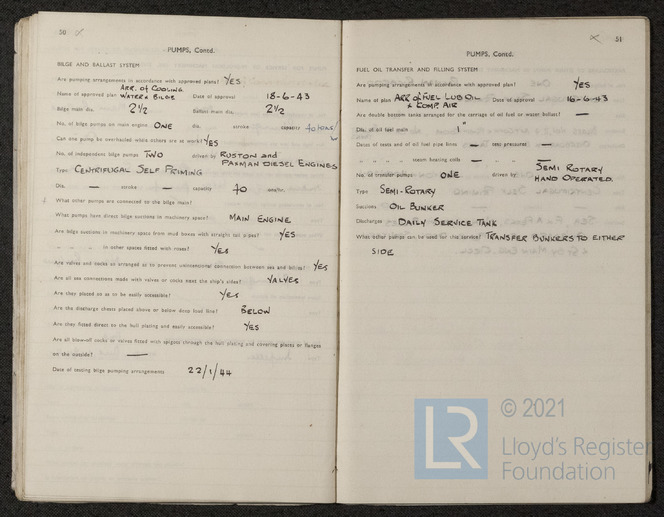 50
PUMPS, Contd.
BILGE AND BALLAST SYSTEM
Are pumping arrangements in accordance with approved plans? YES
Name of approved plan ARR. OF COOLING WATER & BILGE Date of approval 18-6-43
Bilge main dia. 2½ Ballast main dia. 2½
No. of bilge pumps on main engine ONE dia. stroke capacity 40 tons/
Can one pump be overhauled while others are at work? YES
No. of independent bilge pumps TWO driven by RUSTON and PAXMAN DIESEL ENGINES
Type CENTRIFUGAL SELF PRIMING
Dia. — stroke — capacity 40 tons/hr.
What other pumps are connected to the bilge main?
What pumps have direct bilge suctions in machinery space? MAIN ENGINE
Are bilge suctions in machinery space from mud boxes with straight tail pipes? YES
" " " in other spaces fitted with roses? YES
Are valves and cocks so arranged as to prevent unintentional connection between sea and bilges? YES
Are all sea connections made with valves or cocks next the ship's sides? VALVES
Are they placed so as to be easily accessible? YES
Are the discharge chests placed above or below deep load line? BELOW
Are they fitted direct to the hull plating and easily accessible? YES
Are all blow-off cocks or valves fitted with spigots through the hull plating and covering plates or flanges
on the outside? —
Date of testing bilge pumping arrangements 22/1/44
51
PUMPS, Contd.
FUEL OIL TRANSFER AND FILLING SYSTEM
Are pumping arrangements in accordance with approved plans? YES
Name of plan ARR. OF FUEL LUB OIL & COMP. AIR Date of approval 16-6-43
Are double bottom tanks arranged for the carriage of oil fuel or water ballast? —
Dia. of oil fuel main 1"
Dates of tests and of oil fuel pipe lines — test pressures —
" " " " steam heating coils — " " —
No. of transfer pumps ONE driven by SEMI ROTARY HAND OPERATED.
Type SEMI-ROTARY
Suctions OIL BUNKER
Discharges DAILY SERVICE TANK
What other pumps can be used for this service? TRANSFER BUNKERS TO EITHER
SIDE
LR
© 2021
Lloyd's Register
Foundation